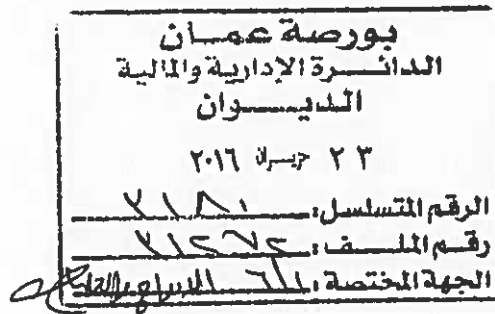 بورصة عمان
الدائـــرة الإدارية والمالية
الديـــوان
٢٣ حزيران ٢٠١٦
الرقم المتسلسل: ٣١٨١
رقم الملـف: ٣١٢٧٢
الجهة المختصة: